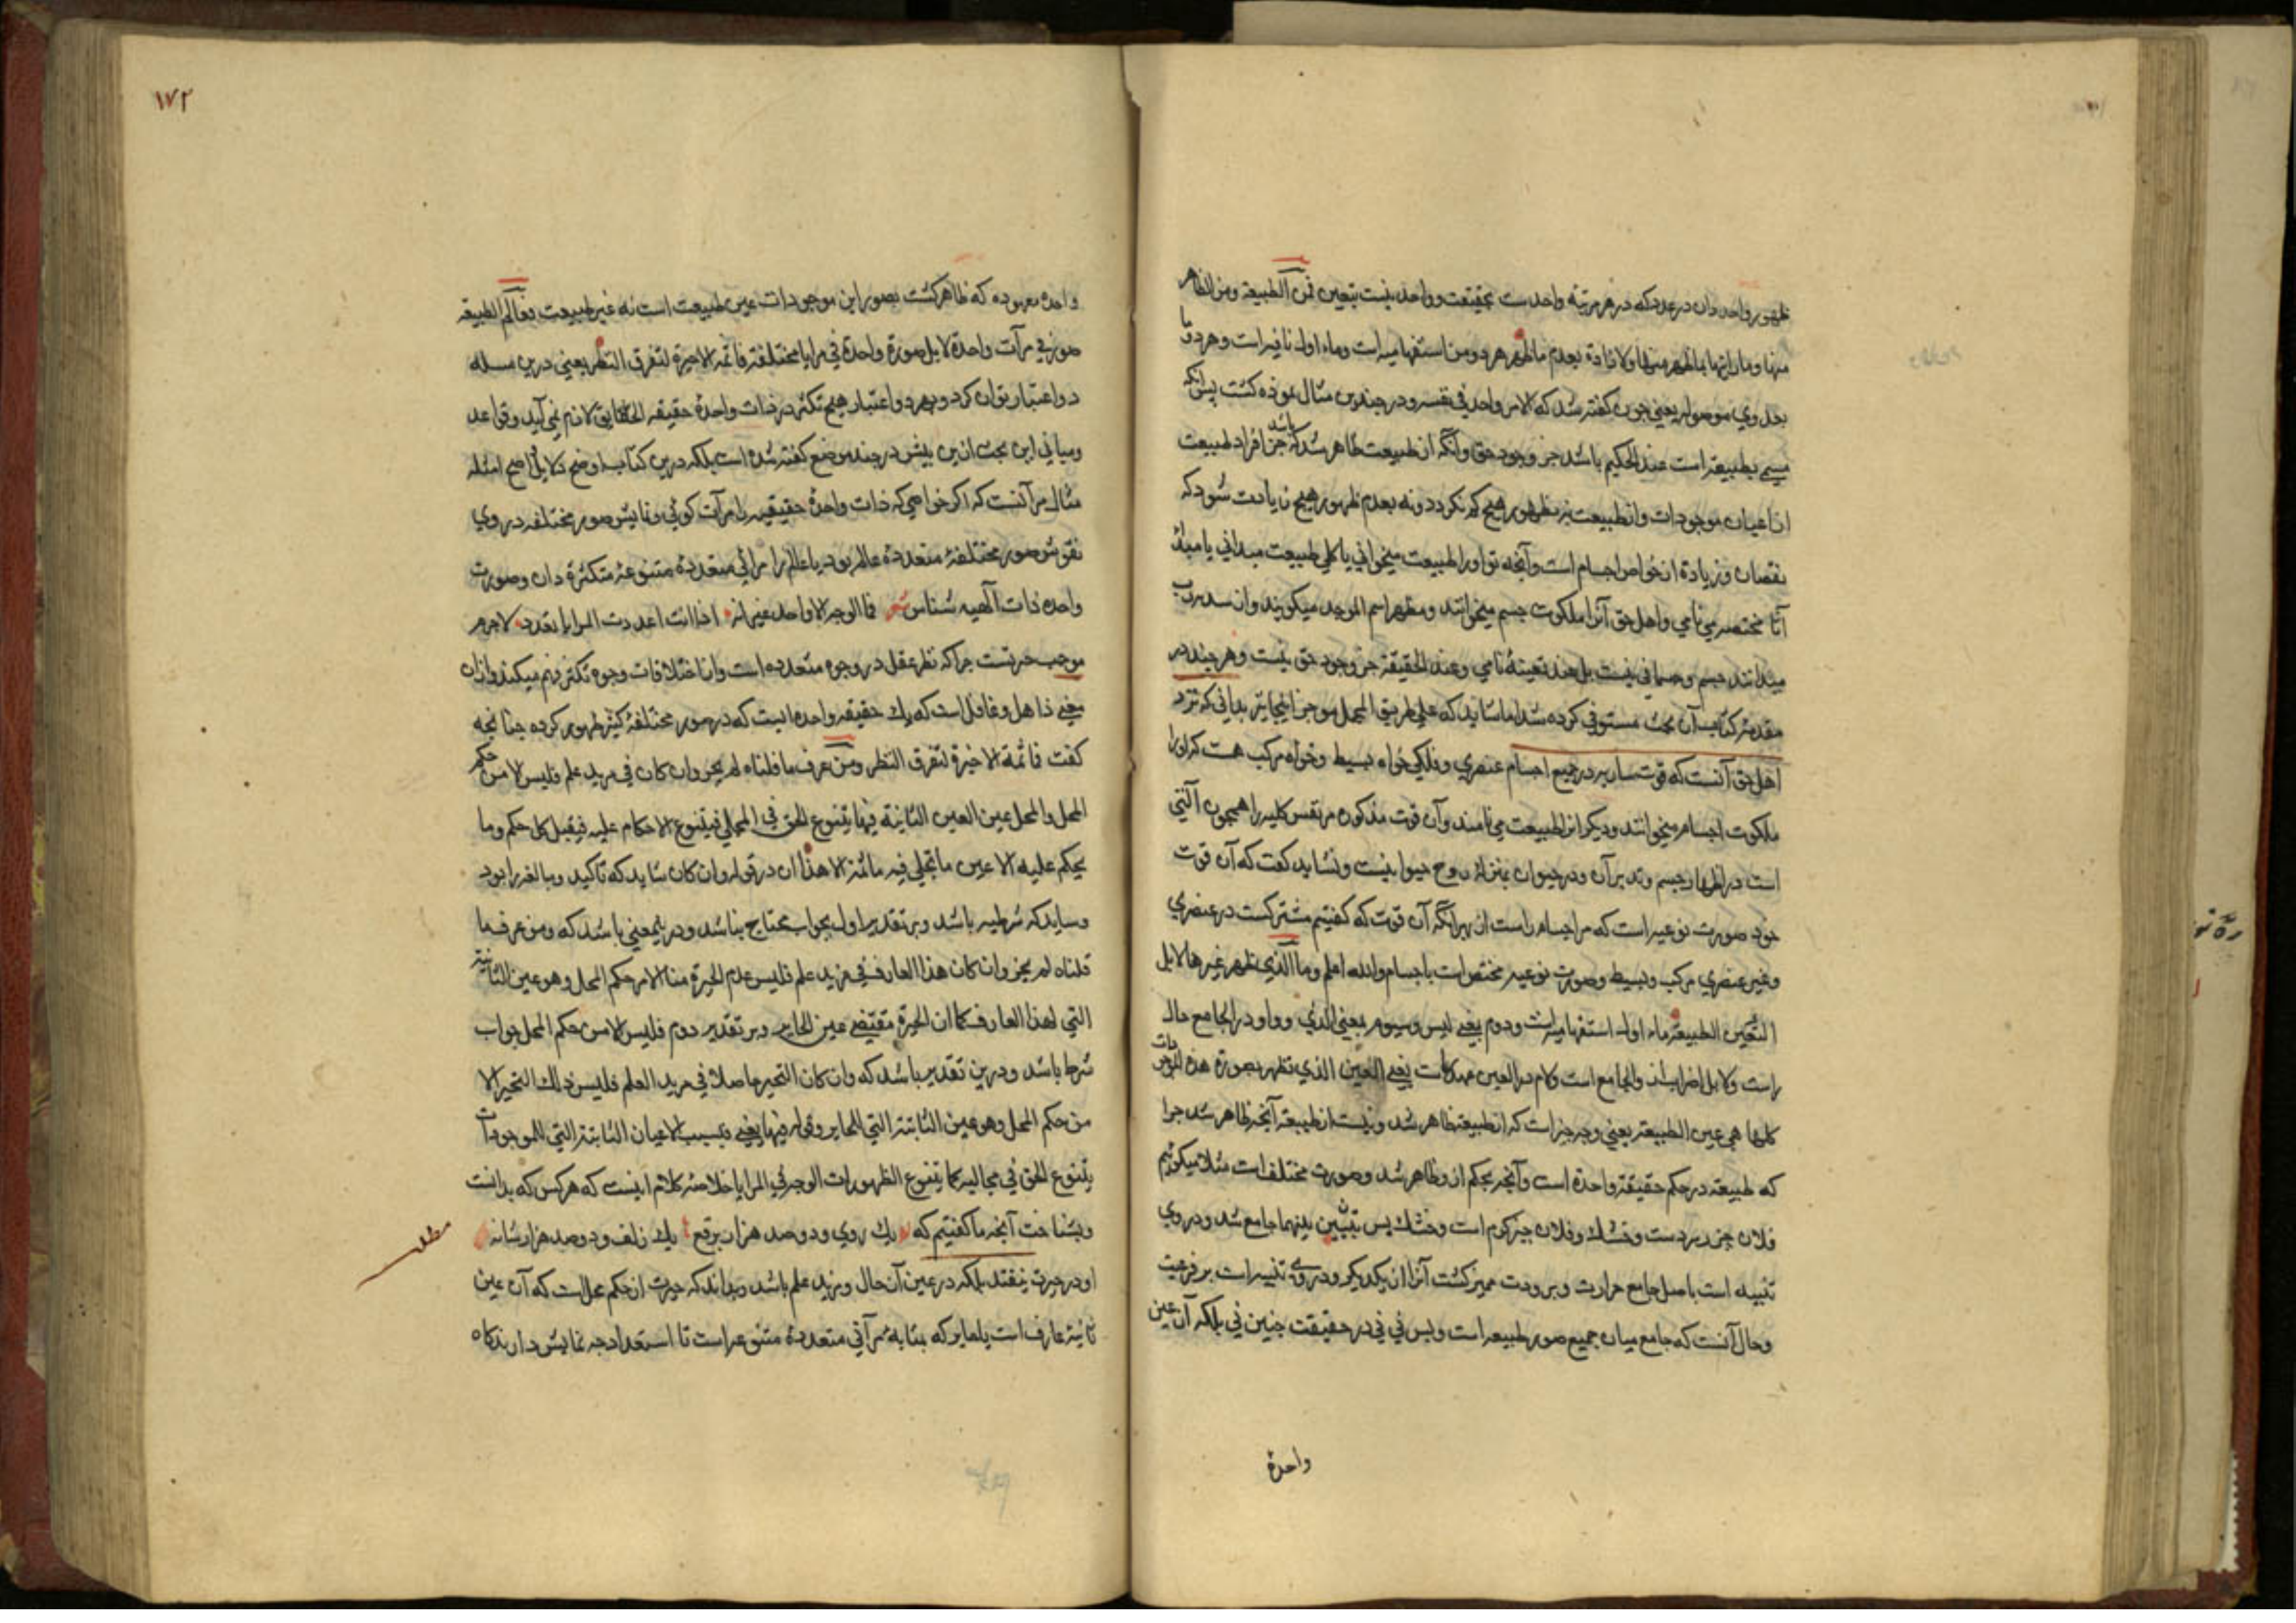 ظهور واحد دان در عدد که در هر مرتبه واحد ست بحقیقت و واحد نیست بتعین فمن الطبیعة ومن الظاهر
منها وما رایناها بما ظهر منها ولا زادة بعدم ما ظهر هر دو من استفهامیه است وماء اول نافیه است و هر دو ما
بعد وی موصوله یعنی چون گفته شد که الامر واحد فی نفسه و در چندین مثال نموده کشت پس آنکه
مسمی بطبیعة است عند الحکیم باشد جز وجود حق وانکه از طبیعت ظاهر شد که باشد جز افراد طبیعت
از اعیان موجودات واز طبیعت بظهور هیچ کم نکردد و نه بعدم ظهور هیچ زیادت شود که
نقصان و زیادة از خواص اجسام است وآنچه تو او را طبیعت میخوانی یا کلی طبیعت میدانی یا مبدأ
آثار مختصه می نامی واهل حق آنرا ملکوت جسم میخوانند ومظهر اسم الموجد میکویند وان
میدانند جسم وجسمانی نیست بل چند تعینهٔ نامی وعند الحقیقة جز وجود حق نیست و هر چند در
مقدمهٔ کتاب آن بحث مستوفی کرده شد اما شاید که علی طریق المجمل موجز اینجا بدانی که نزد
اهل حق آنست که قوت ساریه در جمیع اجسام عنصری وفلکی خواه بسیط وخواه مرکب هست که او را
ملکوت اجسام میخوانند ودیکران طبیعت می نامند وآن قوت مذکوره مر نفس کلیه را همچون آلتی
است در اظهار جسم وتدبیر آن ودر حیوان بمنزلهٔ روح حیوانیست ونشاید کفت که آن قوت
خود صورت نوعیه است که مر اجسام راست از بهر آنکه آن قوت که کفتیم مشترکست در عنصری
وغیر عنصری مرکب وبسیط وصورت نوعیه مختص است باجسام والله اعلم وما الذی ظهر غیرها لابل
العین الطبیعة ماء اول استفهامیه است ودوم یعنی لیس وسیوم بمعنی الذی و واو در الجامع حال
راست ولابل اضراب از والجامع است ولام در العین عهد راست یعنی العین الذی تظهر بصورة هذه الموجودات
کلها هی عین الطبیعة یعنی چه چیز است که از طبیعة ظاهر شد ونیست از طبیعة آنچه ظاهر شد چرا
که طبیعة در حکم حقیقة واحدة است وآنچه بحکم از و ظاهر شد وصورت مختلف است مثلا میکوئیم
فلان چیز سردست وخشک وفلان چیز کرم است وخشک پس تبیین بینهما جامع شد ودر وی
تنبیه است باصل جامع حرارت وبرودت ممیز کشت آنرا از یکدیکر ودر وی تنبیه است بر فرعیت
وحال آنست که جامع میان جمیع صور طبیعه است وبس نی نی در حقیقت چنین نی بلکه آن عین
واحدة
۱۷۲
واحدهٔ معهوده که ظاهر کشت بصور این موجودات عین طبیعت است نه غیر طبیعت فعالم الطبیعة
صور فی مرآت واحدة لا بل صورة واحدة فی مرایا مختلفة فاثمه الاحیرة لتفرق النظر یعنی درین مسله
دو اعتبار توان کرد وبهر دو اعتبار هیچ تکثر در ذات واحدهٔ حقیقة الحقایق لازم نمی آید وقواعد
ومبانی این بحث ازین پیش در چند موضع کفته شده است بلکه درین کتاب اوضح دلایل اصح امثله
مثال مرآتست که اکر خواهی که ذات واحدهٔ حقیقیه را مرآت کوئی ونمایش صور مختلفه در وی
نقوش صور مختلفهٔ متعددهٔ عالم بود یا عالم را مرائی متعددهٔ متنوعهٔ متکثرة دان وصورت
واحده ذات آلهیه شناس شعر فما الوجه الا واحد غیر انه اذا انت اعددت المرایا تعددا لاجرم
موجب حیرتست چرا که نظر عقل در وجوه متعدده است واز اختلافات وجوه تکثر فهم میکند واز آن
معنی ذاهل وغافل است که یک حقیقه واحده است که در صور مختلفهٔ کثیر ظهور کرده چنانچه
کفت فاثمة الاحیرة لتفرق النظر ومن عرف ما قلناه لم یحر وان کان فی مزید علم فلیس الا من حکم
المحل والمحل عین العین الثابتة فیها یتنوع الحق فی المجالی فیتنوع الاحکام علیه فیقبل کل حکم وما
یحکم علیه الا عین ما تجلی فیه ماثمة الا هذا ان در قوله وان کان شاید که تاکید ومبالغه را بود
وشاید که شرطیه باشد وبر تقدیر اول بجواب محتاج نباشد ودر معنی باشد که ومن عرف ما
قلناه لم یحر وان کان هذا العارف فی مزید علم فلیس عدم الحیرة منا الا من حکم المحل وهو عین الثابتة
التی لهذا العارف کما ان الحیرة مقتضی عین الحایر وبر تقدیر دوم فلیس الا من حکم المحل جواب
شرط باشد ودرین تقدیر باشد که وان کان التحیر حاصلا فی مزید العلم فلیس ذلك التحیر الا
من حکم المحل وهو عین الثابتة التی للحایر وقوله فیها یعنی بسبب الاعیان الثابتة التی للموجودات
یتنوع الحق فی مجالیه کما یتنوع الظهورات الوجه فی المرایا خلاصهٔ کلام اینست که هر کس که بدانست
وبشناخت آنچه ما کفتیم که یک روی ودوصد هزار برقع یک زلف ودوصد هزار شانه
او در حیرت نیفتد بلکه در عین آن حال ومزید علم باشد وبداند که حیرت از حکم محل است که آن عین
ثابتهٔ عارف است یا حایر که بمثابهٔ مرآتی متعددهٔ متنوعه است تا استعداد چه نمایش دارند کاه
مطلب